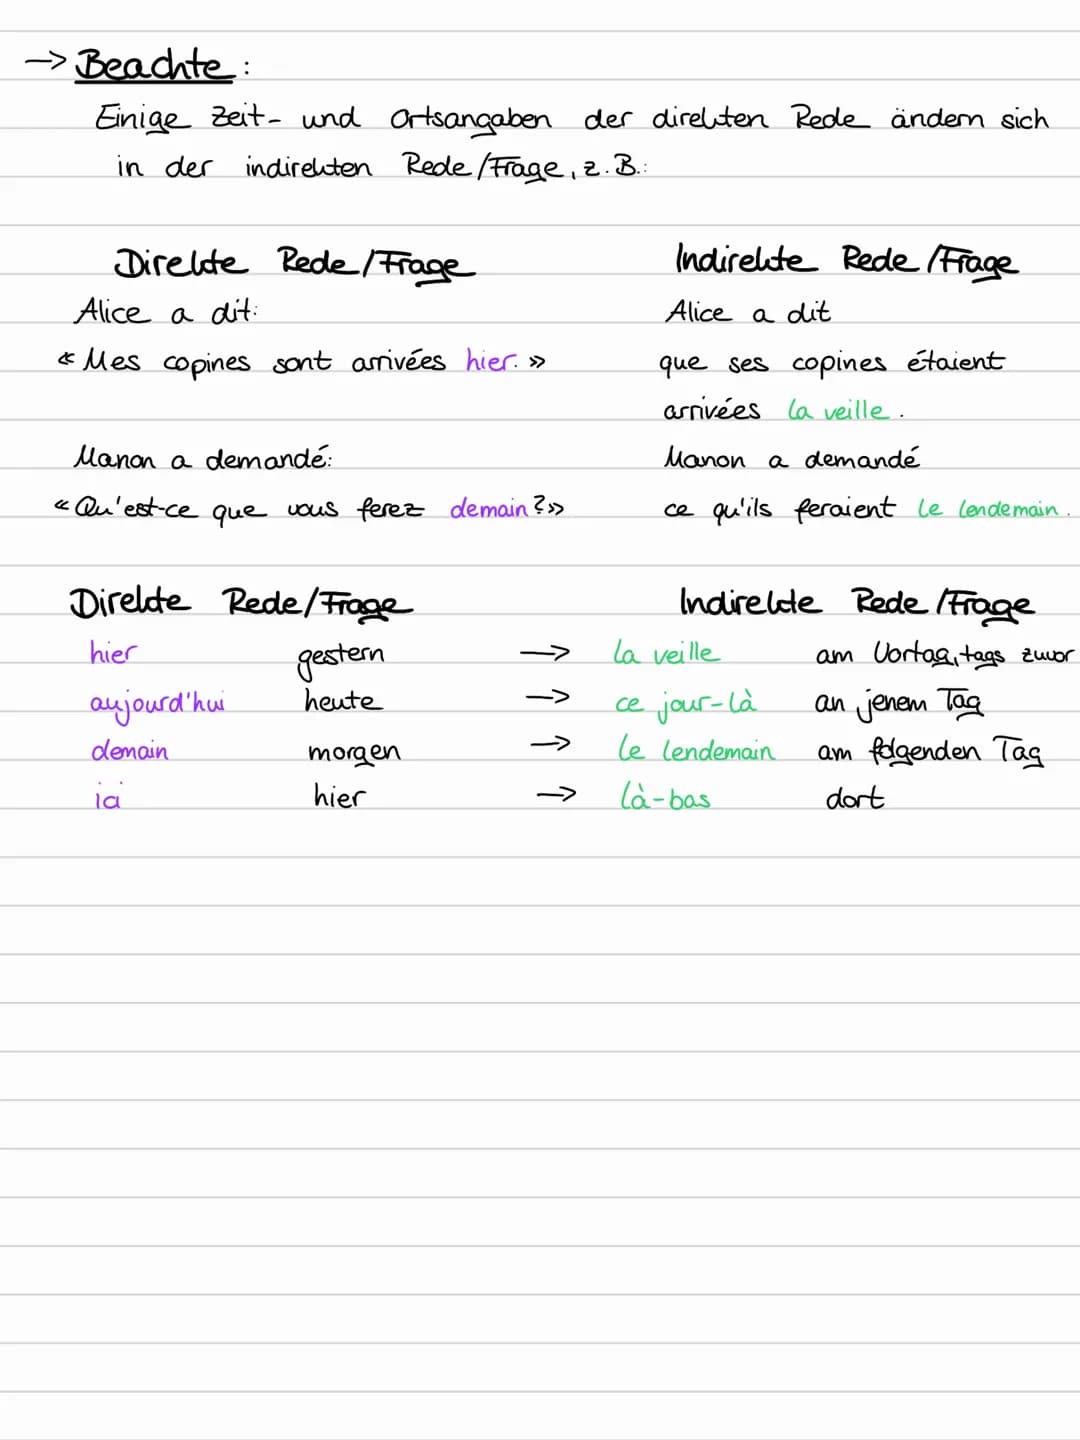 → Beachte:
Einige Zeit- und Ortsangaben der direkten Rede ändern sich
in der indirekten Rede/Frage, z.B.:
Direkte Rede/Frage Indirekte Rede/Frage
Alice a dit: Alice a dit
« Mes copines sont arrivées hier. » que ses copines étaient
arrivées la veille.
Manon a demandé: Manon a demandé
« Qu'est-ce que vous ferez demain?» ce qu'ils feraient le lendemain.
Direkte Rede/Frage Indirekte Rede/Frage
hier gestern → la veille am Vortag, tags zuvor
aujourd'hui heute → ce jour-là an jenem Tag
demain morgen → le lendemain am folgenden Tag
ici hier → là-bas dort